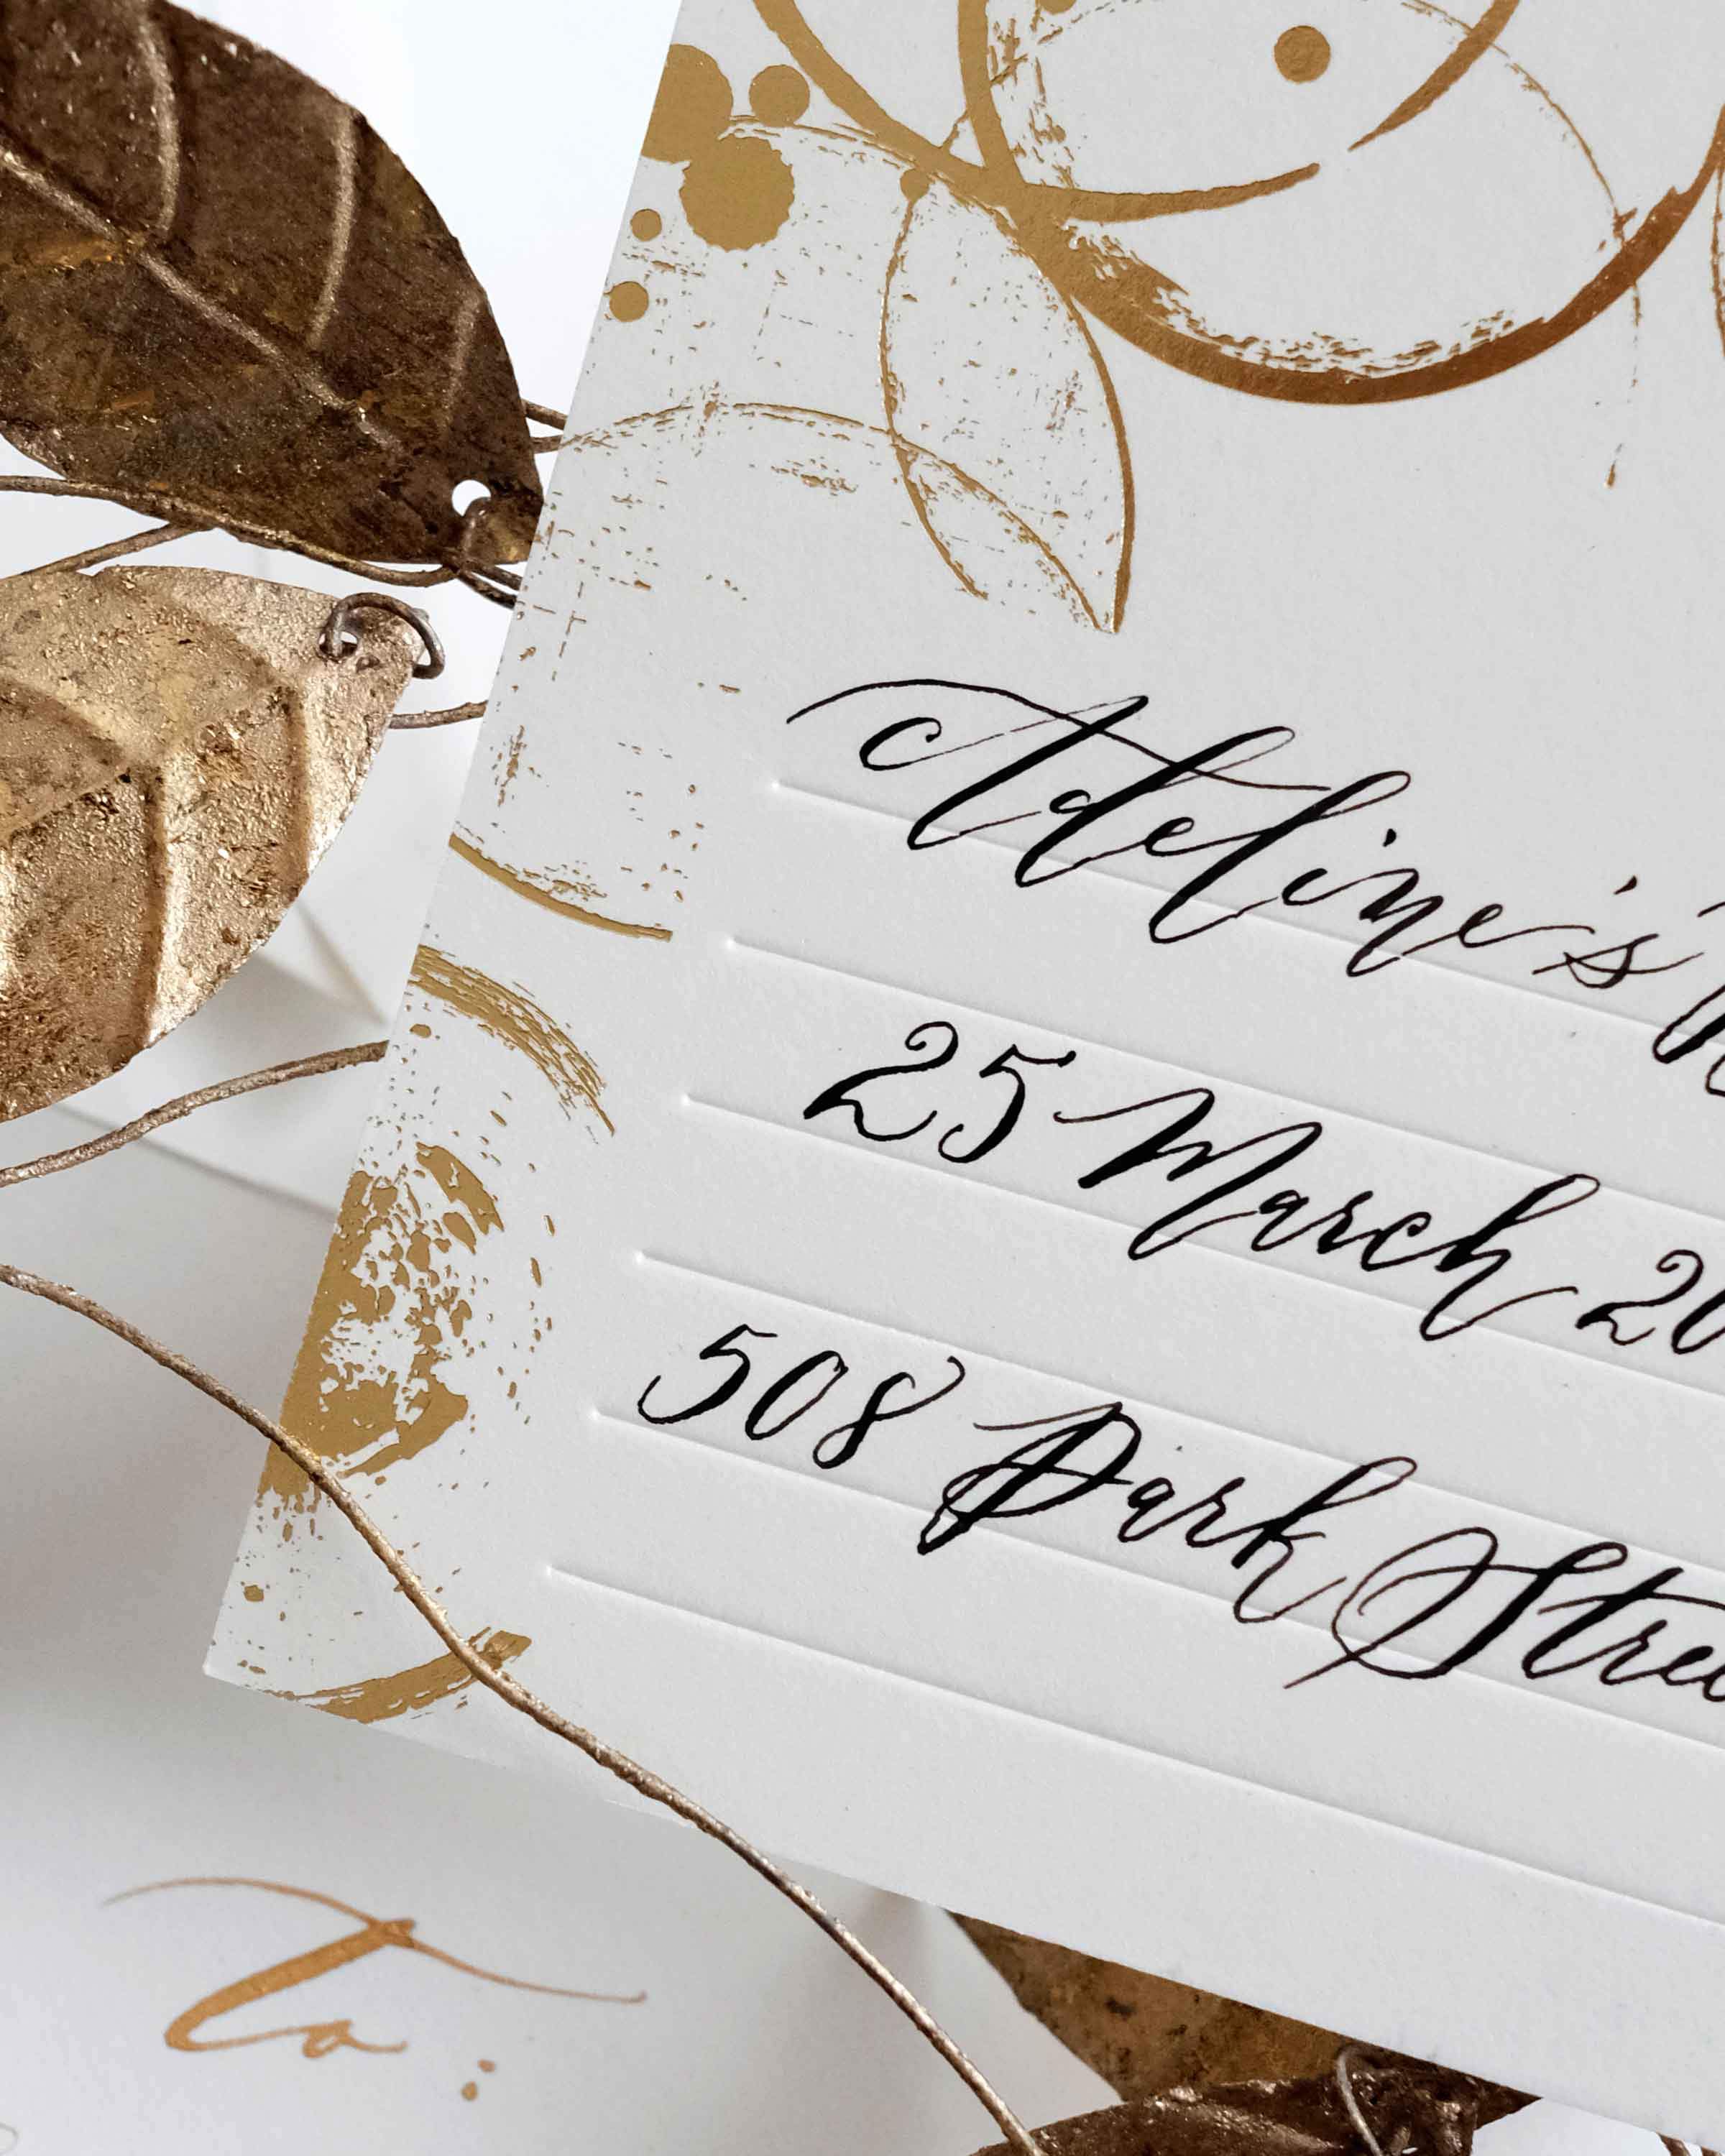 Adeline's
25 March 20
508 Park Stree
To: